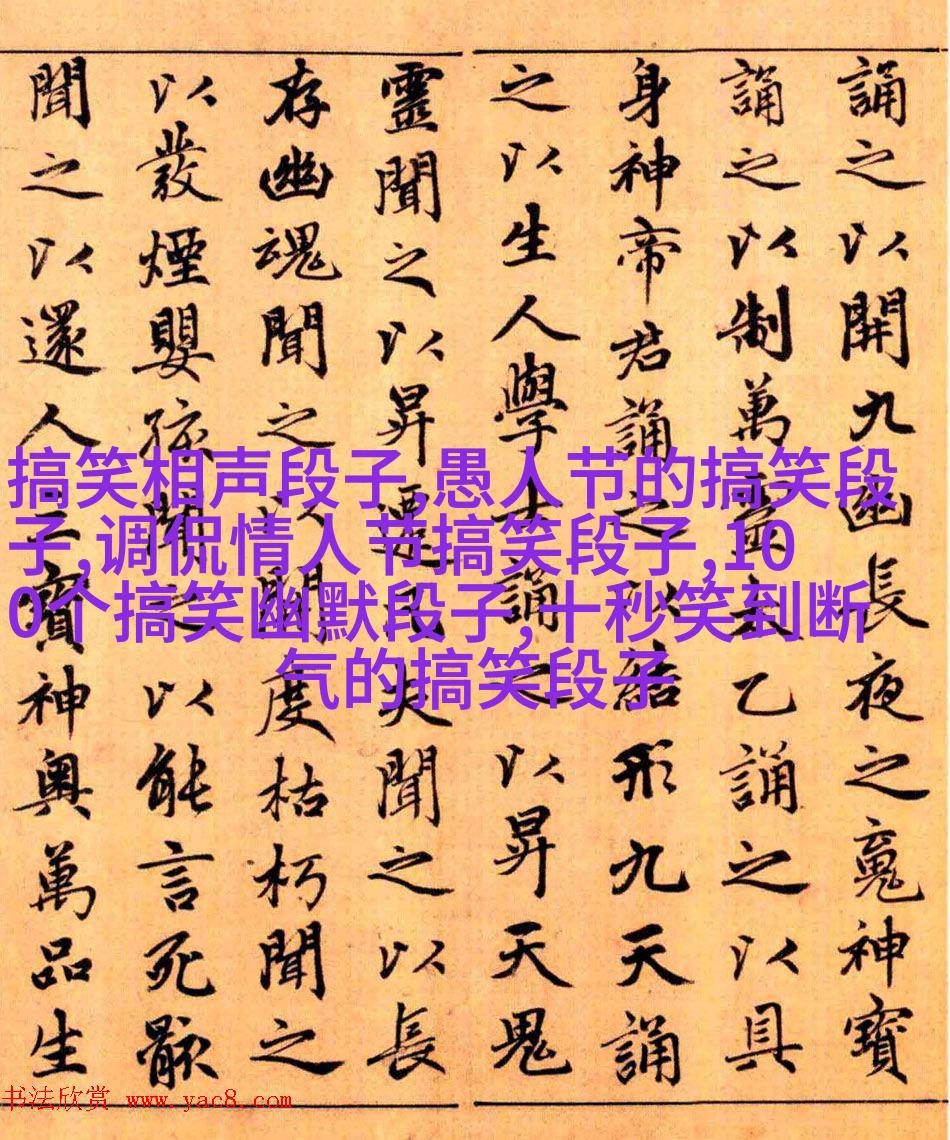 誦之以開九幽長夜之䰟神寶
誦之以制萬靈太乙誦之以具
身神帝君誦之以結形九天誦
之以生人學士誦之以昇天鬼
靈聞之以昇遷凡夫聞之以長
存幽魂聞之以開度枯朽聞之
以發煙嬰孩聞之以能言死骸
聞之以還人三寶神奧萬品生
搞笑相声段子,愚人节的搞笑段
子,调侃情人节搞笑段子,10
0个搞笑幽默段子,十秒笑到断
气的搞笑段子
书法欣赏 www.yac8.com